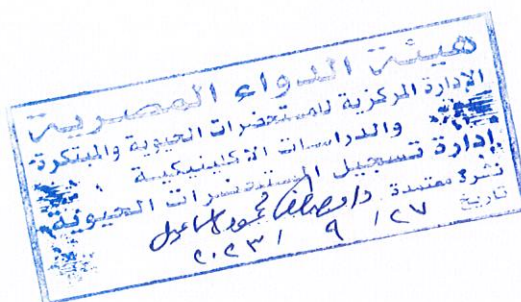 هيئة الدواء المصرية
الإدارة المركزية للمستحضرات الحيوية والمبتكرة
والدراسات الاكلينيكية
إدارة تسجيل المستحضرات الحيوية
نشرة معتمدة د/مصطفى محمود
تاريخ ٢٧ / ٩ / ٢٠٢٣